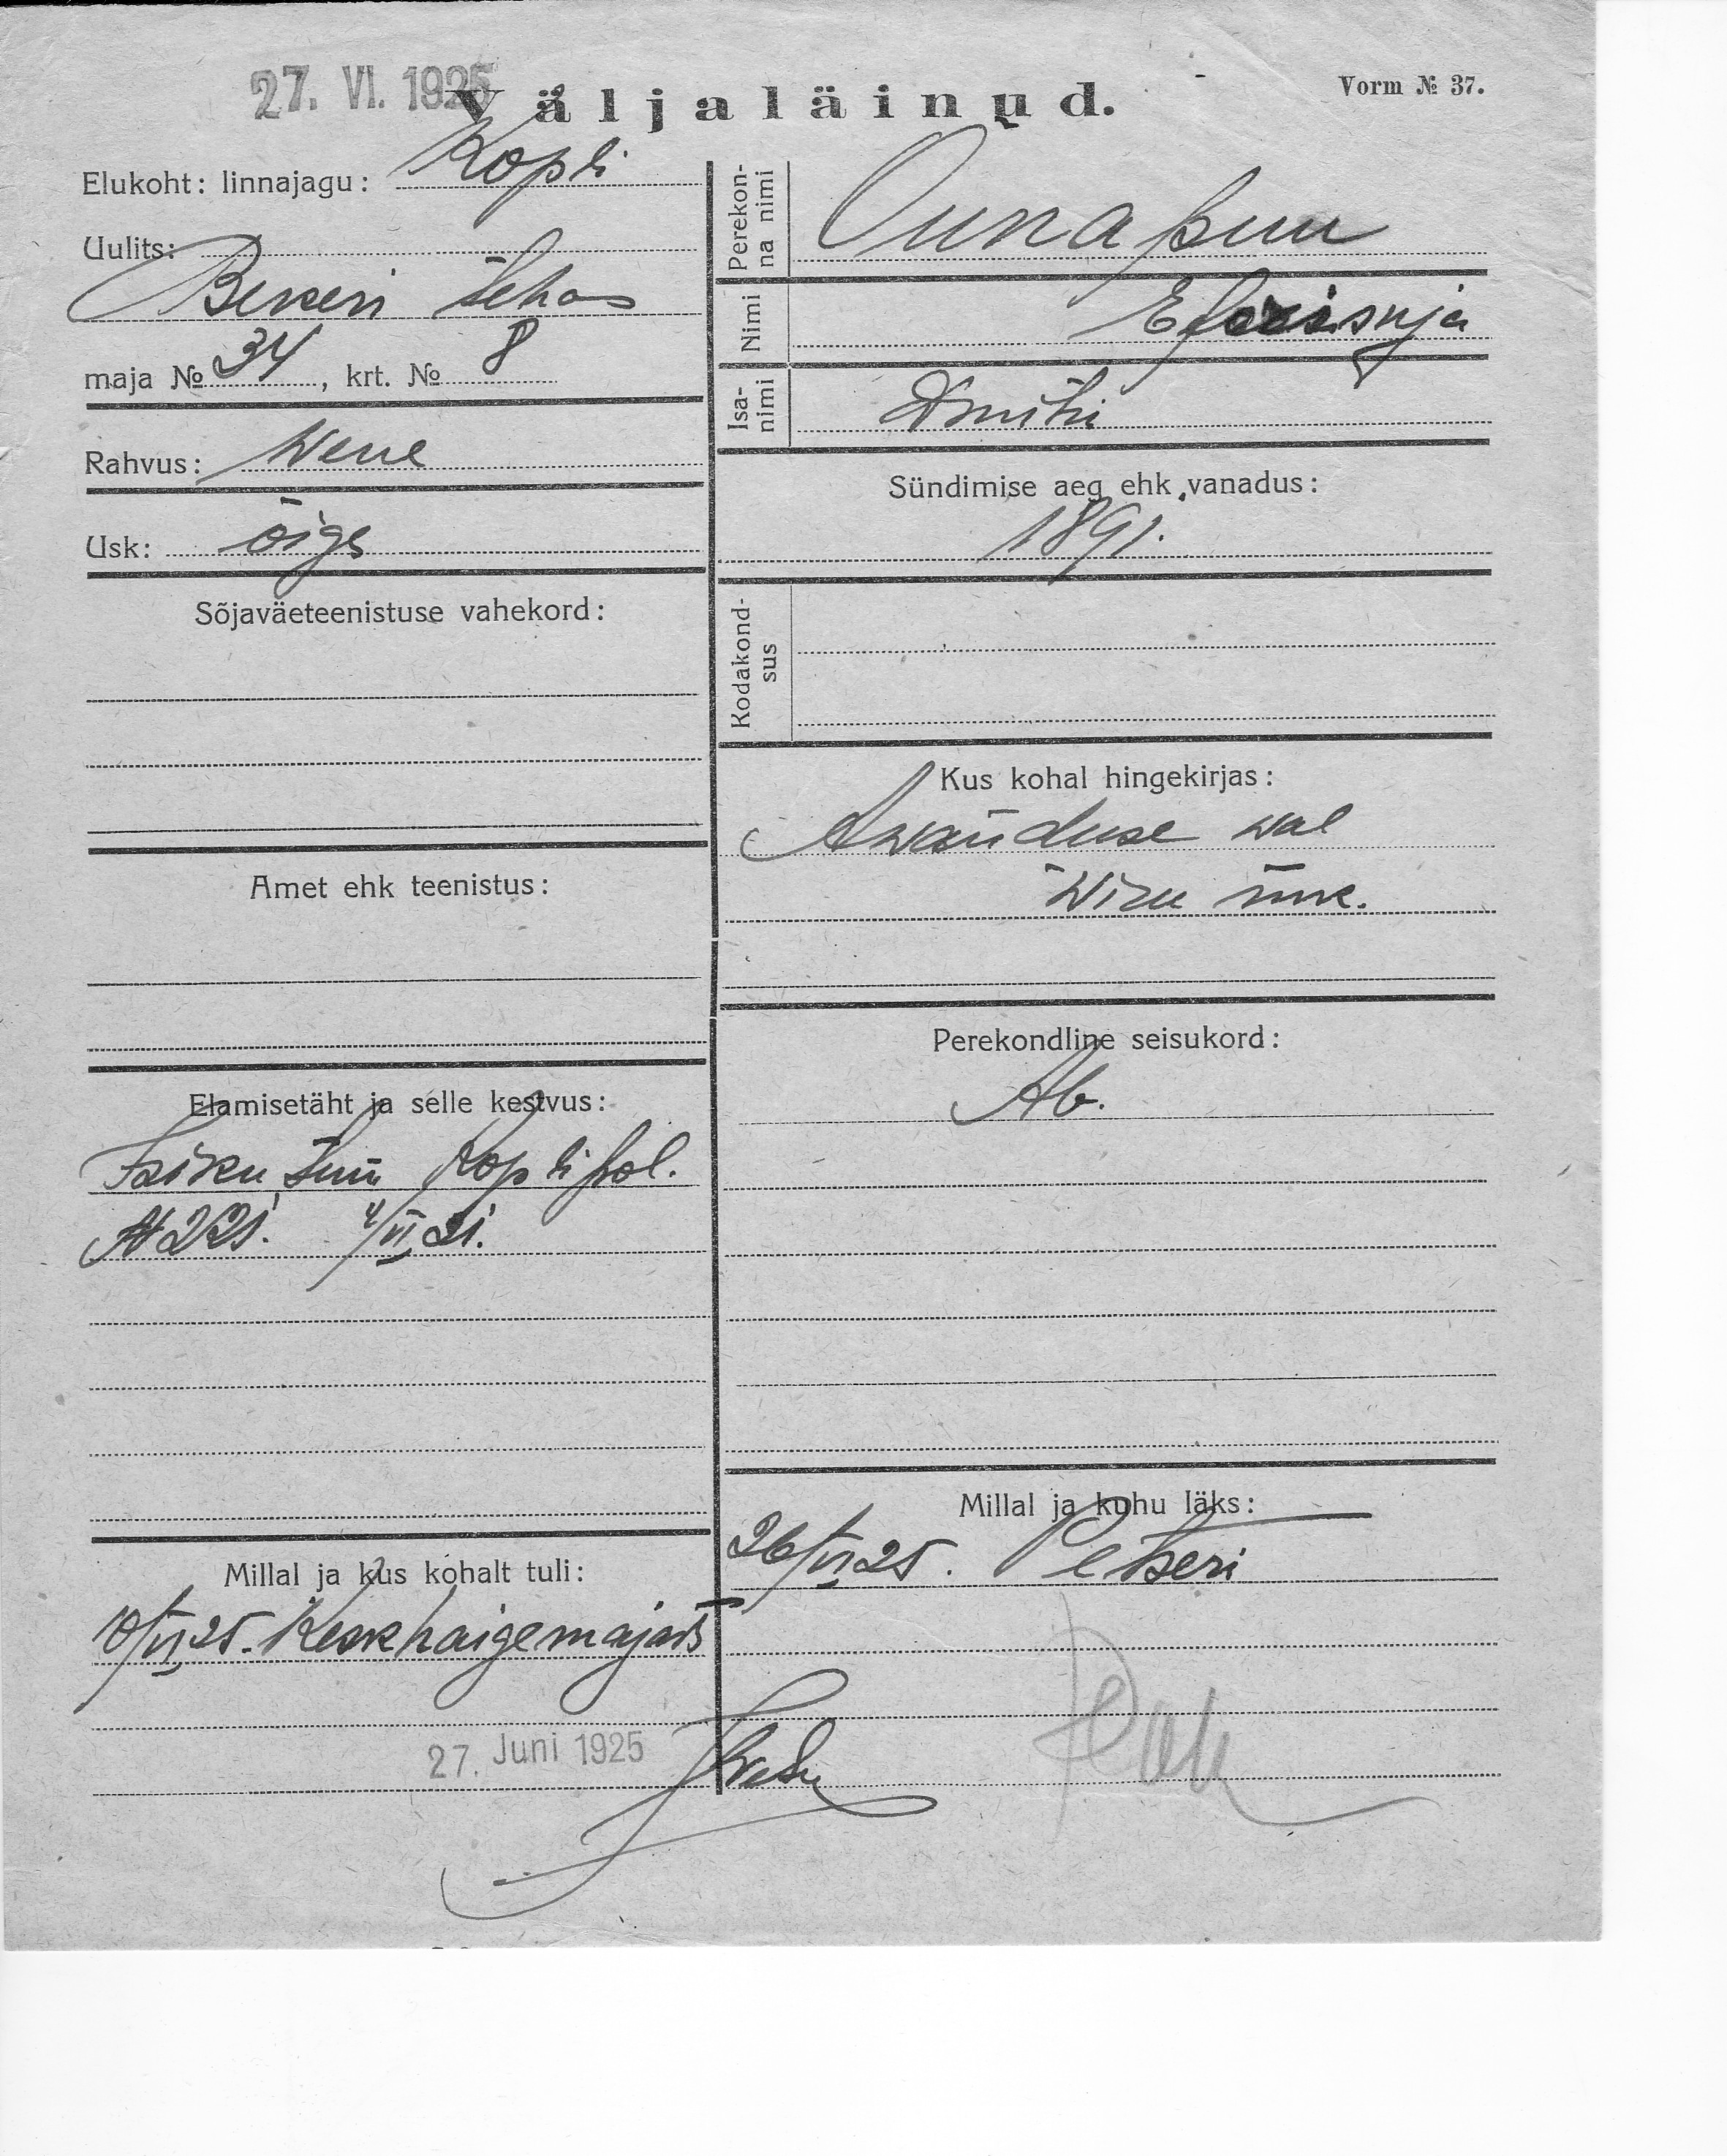 27. VI. 1925
Väljaläinud.
Vorm № 37.
Elukoht: linnajagu: Kopli
Uulits:
Bekeri tehas
maja № 34, krt. № 8
Rahvus: Wene
Usk: õige
Sõjaväeteenistuse vahekord:
Amet ehk teenistus:
Elamisetäht ja selle kestvus:
Isiku tun Kopli pol.
№ 221. 4/VI 21.
Millal ja kus kohalt tuli:
10/VI 25. Keskhaigemajast
27. Juni 1925
Perekonna nimi
Õunapuu
Nimi
Isanimi
Dmitri
Sündimise aeg ehk vanadus:
1891.
Kodakondsus
Kus kohal hingekirjas:
Awanduse wal
Wiru mk.
Perekondline seisukord:
Ab.
Millal ja kuhu läks:
26/VI 25. Petseri